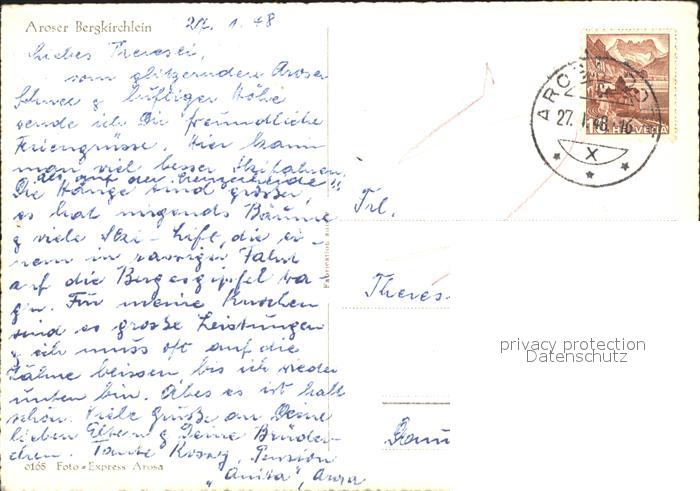 Aroser Bergkirchlein
27. 1. 48
Liebes Theresli,
vom glitzernden Aroser
Schnee & luftiger Höhe
sende ich Dir freundliche
Feriengrüsse. Hier kann
man viel besser Skifahren
als auf der Lenzerheide!!
Die Hänge sind grösser,
es hat nirgends Bäume
& viele Ski-Lift, die ei-
nem in rassiger Fahrt
auf die Bergesgipfel tra-
g'n. Für meine Knochen
sind es grosse Leistungen
& ich muss oft auf die
Zähne beissen bis ich wieder
unten bin. Aber es ist halt
schön. Viele Grüsse an Deine
lieben Eltern & Deine Brüder-
chen. Tante Pension
"Anita", Arosa
6165 Foto-Express Arosa
Fabrication
AROSA
27. I. 48. 16
X
10 HELVETIA
Frl.
Theres
privacy protection
Datenschutz